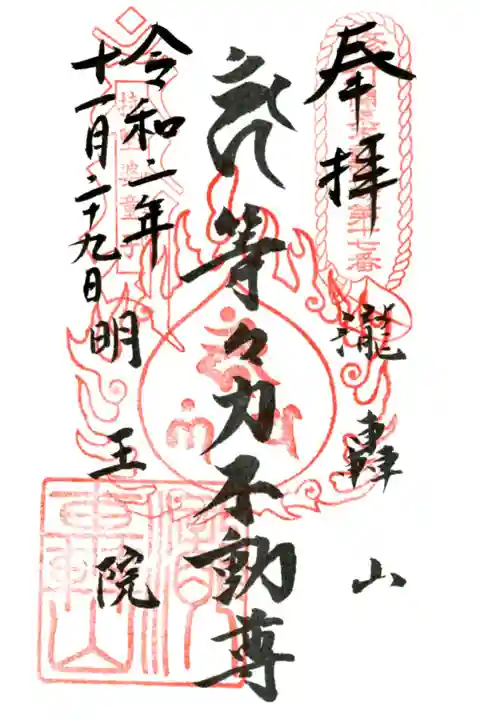 奉拝
瀧轟山
等々力不動尊
明王院
令和二年
十一月二十九日
第十七番